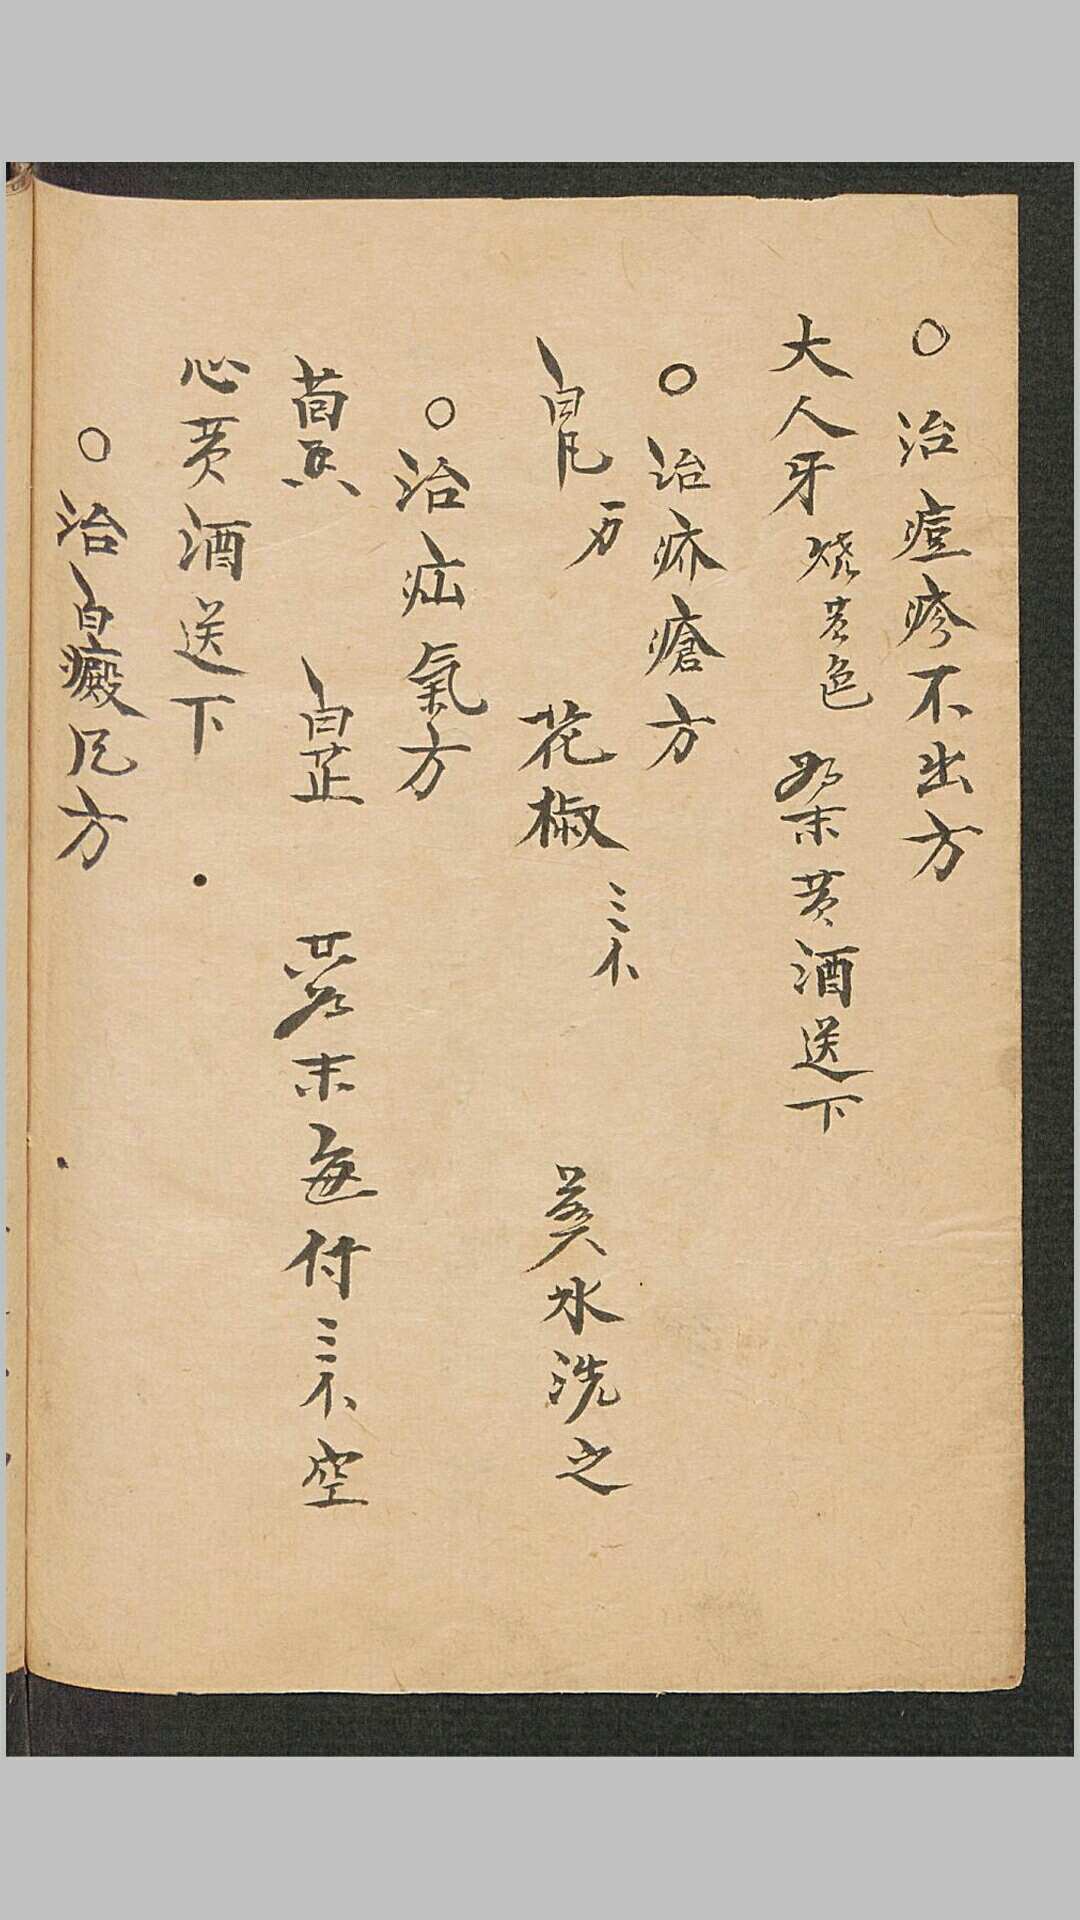 ○治痘疹不出方
大人牙 烧黄色 為末黄酒送下
○治疥瘡方
白凡 花椒 三不 煎水洗之
○治疝氣方
茴 白芷 共為末每付三不空
心黄酒送下
○治白癜风方